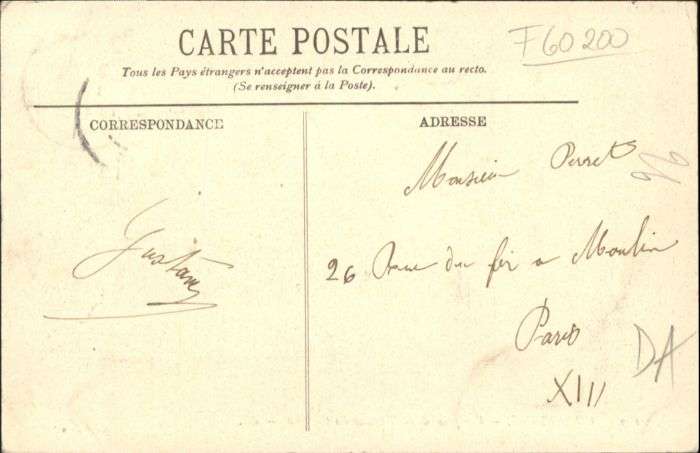 CARTE POSTALE
F60200
Tous les Pays étrangers n'acceptent pas la Correspondance au recto.
(Se renseigner à la Poste).
CORRESPONDANCE
Gustave
ADRESSE
Monsieur Perret
26 Rue du fer a Moulin
Paris
XIII
DA